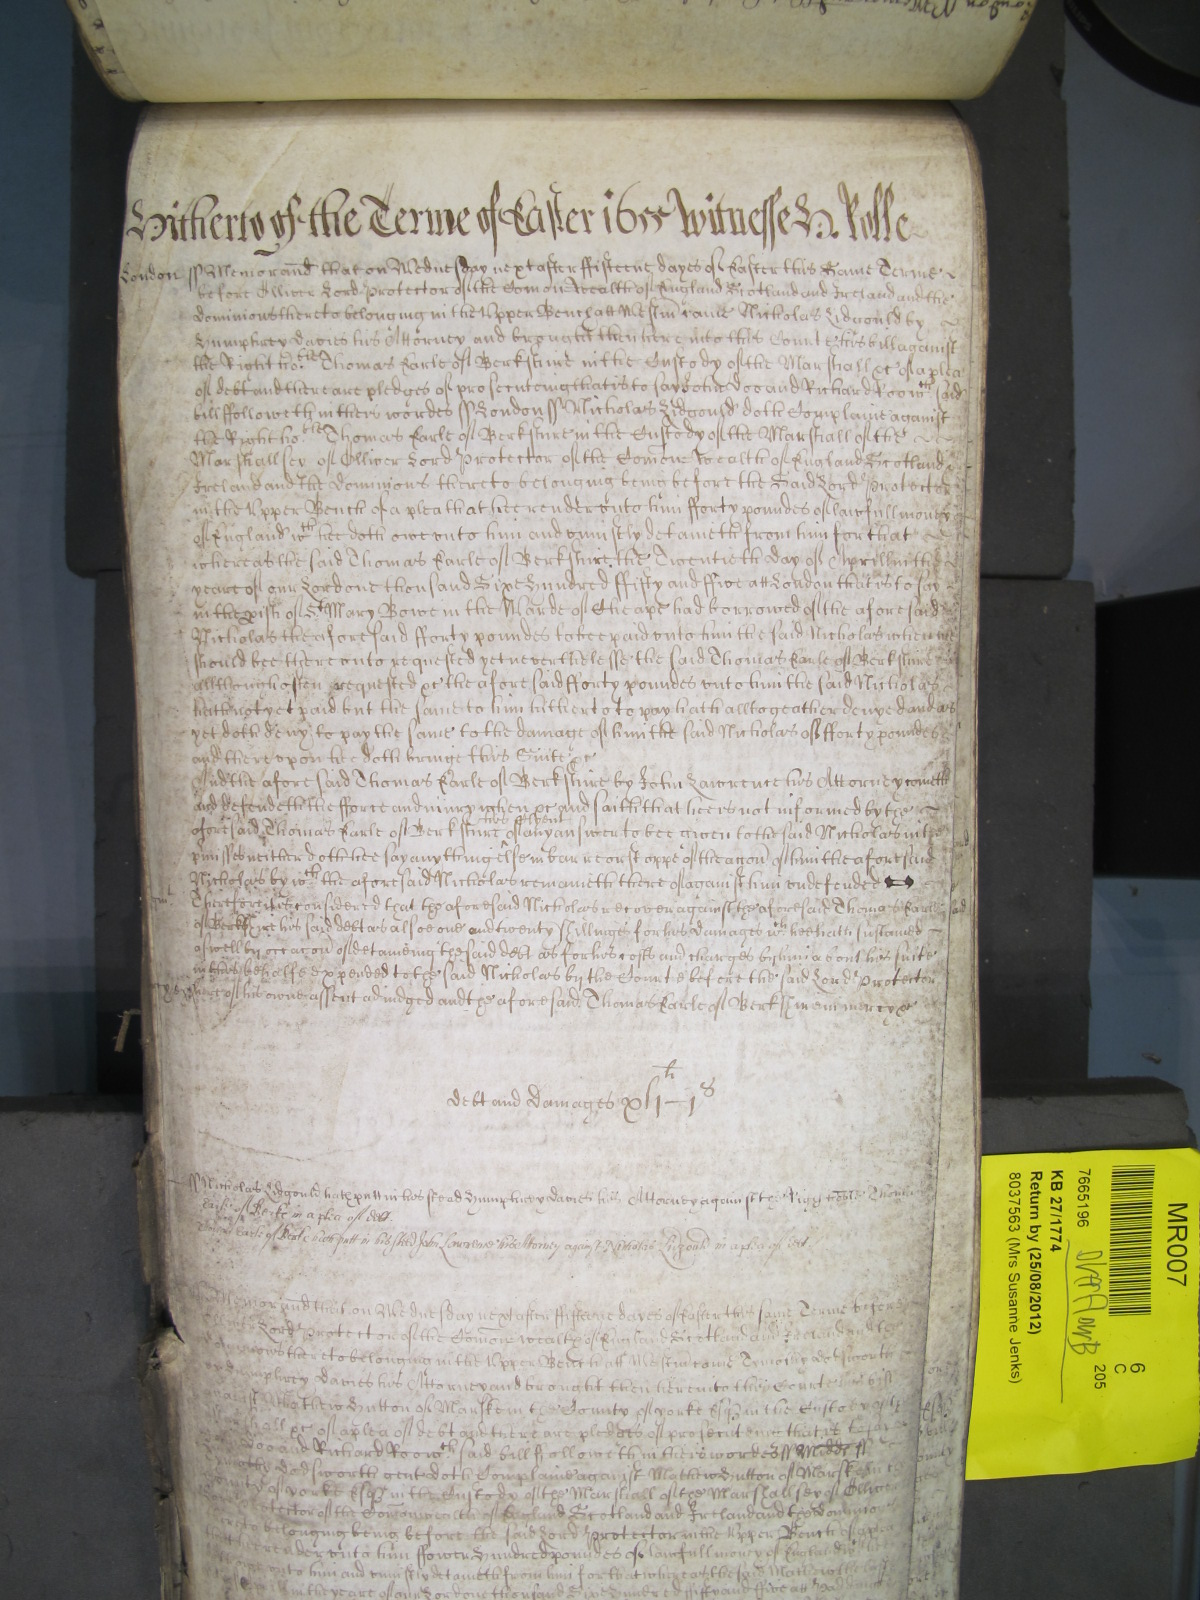 Hitherto of the Terme of Easter 1655 Witnesse H. Rolle
London ss Memorand that on Wednesday next after fifteene dayes of Easter this Same Terme
before Oliver Lord Protector of the Comon Wealth of England Scotland and Ireland and the
dominions thereto belonging in the Upper Bench att Westm came Nicholas Lidgould by
Humphrey Davies his Attorney and brought then here into this Courte his bill against
the Right ho:ble Thomas Earle of Berkshire in the Custody of the Marshall &c of a plea
of debt and there are pledges of prosecuteing that is to say John Doo and Richard Roo wch said
bill ffolloweth in theis wordes ss London ss Nicholas Lidgould doth Complaine against
the Right ho:ble Thomas Earle of Berkshire in the Custody of the Marshall of the
Marshallsey of Oliver Lord Protector of the Comon Wealth of England Scotland
Ireland and the Dominions thereto belonging being before the Said Lord Protector
in the Upper Bench of a plea that hee render unto him fforty poundes of lawfull money
of England wch hee doth owe unto him and uniustly detaineth from him for that
whereas the said Thomas Earle of Berkshire the Twentieth day of Aprill in the
yeare of our Lord one thousand Sixe Hundred ffifty and ffive att London that is to say
in the pish of St Mary Bowe in the Warde of Cheape had borrowed of the aforesaid
Nicholas the aforesaid fforty poundes to bee paid unto him the said Nicholas when hee
should bee thereunto requested yet neverthelesse the said Thomas Earle of Berkshire
allthough often requested &c the aforesaid fforty poundes unto him the said Nicholas
hath not yet paid but the same to him hitherto to pay hath alltogeather denyed and as
yet doth deny to pay the same to the damage of him the said Nicholas of fforty poundes
and thereupon hee doth bringe this Suite &c
And the aforesaid Thomas Earle of Berkshire by John Lawrence his Attorney cometh
and defendeth the fforce and iniury when &c and saith that hee is not informed by the
aforesaid Thomas Earle of Berkshire his Clyent of any answer to bee given to the said Nicholas in the
pmisses neither doth hee say any thing else in barre or stoppe of the accon of him the aforesaid
Nicholas by wch the aforesaid Nicholas remaineth thereof against him undefended
Therefore itt is considered that the aforesaid Nicholas recover against the aforesaid Thomas Earle
of Berkshire his said debt as alsoe one and twenty shillinges for his damages wch hee hath sustained
aswell by occacon of detaineing the said debt as for his costs and charges by him about his suite
in this behalfe expended to the said Nicholas by the Courte before the said Lord Protector
here of his owne assent adiudged and the aforesaid Thomas Earle of Berkshire in mercy &c
debt and damages xli li j s
ss Nicholas Lidgould hath putt in his stead Humphrey Davies his Attorney against the right ho:ble Thomas
Earle of Berks in a plea of debt
Earle of Berks hath putt in his stead John Lawrence his Attorney against Nicholas Lidgould in a plea of debt
Memorand that on Wednesday next after ffifteene dayes of Easter this same Terme before
Lord Protector of the Comon wealth of England Scotland and Ireland and the
dominions thereto belonging in the Upper Bench att Westm came Tymothy Dodsworth
by Humphrey Davies his Attorney and brought then here into this Courte his bill
against Mathew Hutton of Marske in the County of Yorke Esqr in the Custody of the
Marshall &c of a plea of debt and there are pledges of prosecuteing that is to say
John Doo and Richard Roo wch said bill ffolloweth in theis wordes ss Midds ss
Tymothy Dodsworth gent doth Complaine against Mathew Hutton of Marske in the
County of Yorke Esqr in the Custody of the Marshall of the Marshallsey of Oliver
Lord Protector of the Comonwealth of England Scotland and Ireland and the Dominions
thereto belonging being before the said Lord Protector in the Upper Bench of a plea
that hee render unto him ffower Hundred poundes of lawfull money of England
unto him and uniustly detaineth from him for that whereas the said Mathew
in the yeare of our Lord one thousand Sixe Hundred ffifty and ffive att
MR007
6
C
205
7665196
KB 27/1774
Return by (25/08/2012)
8037563 (Mrs Susanne Jenks)